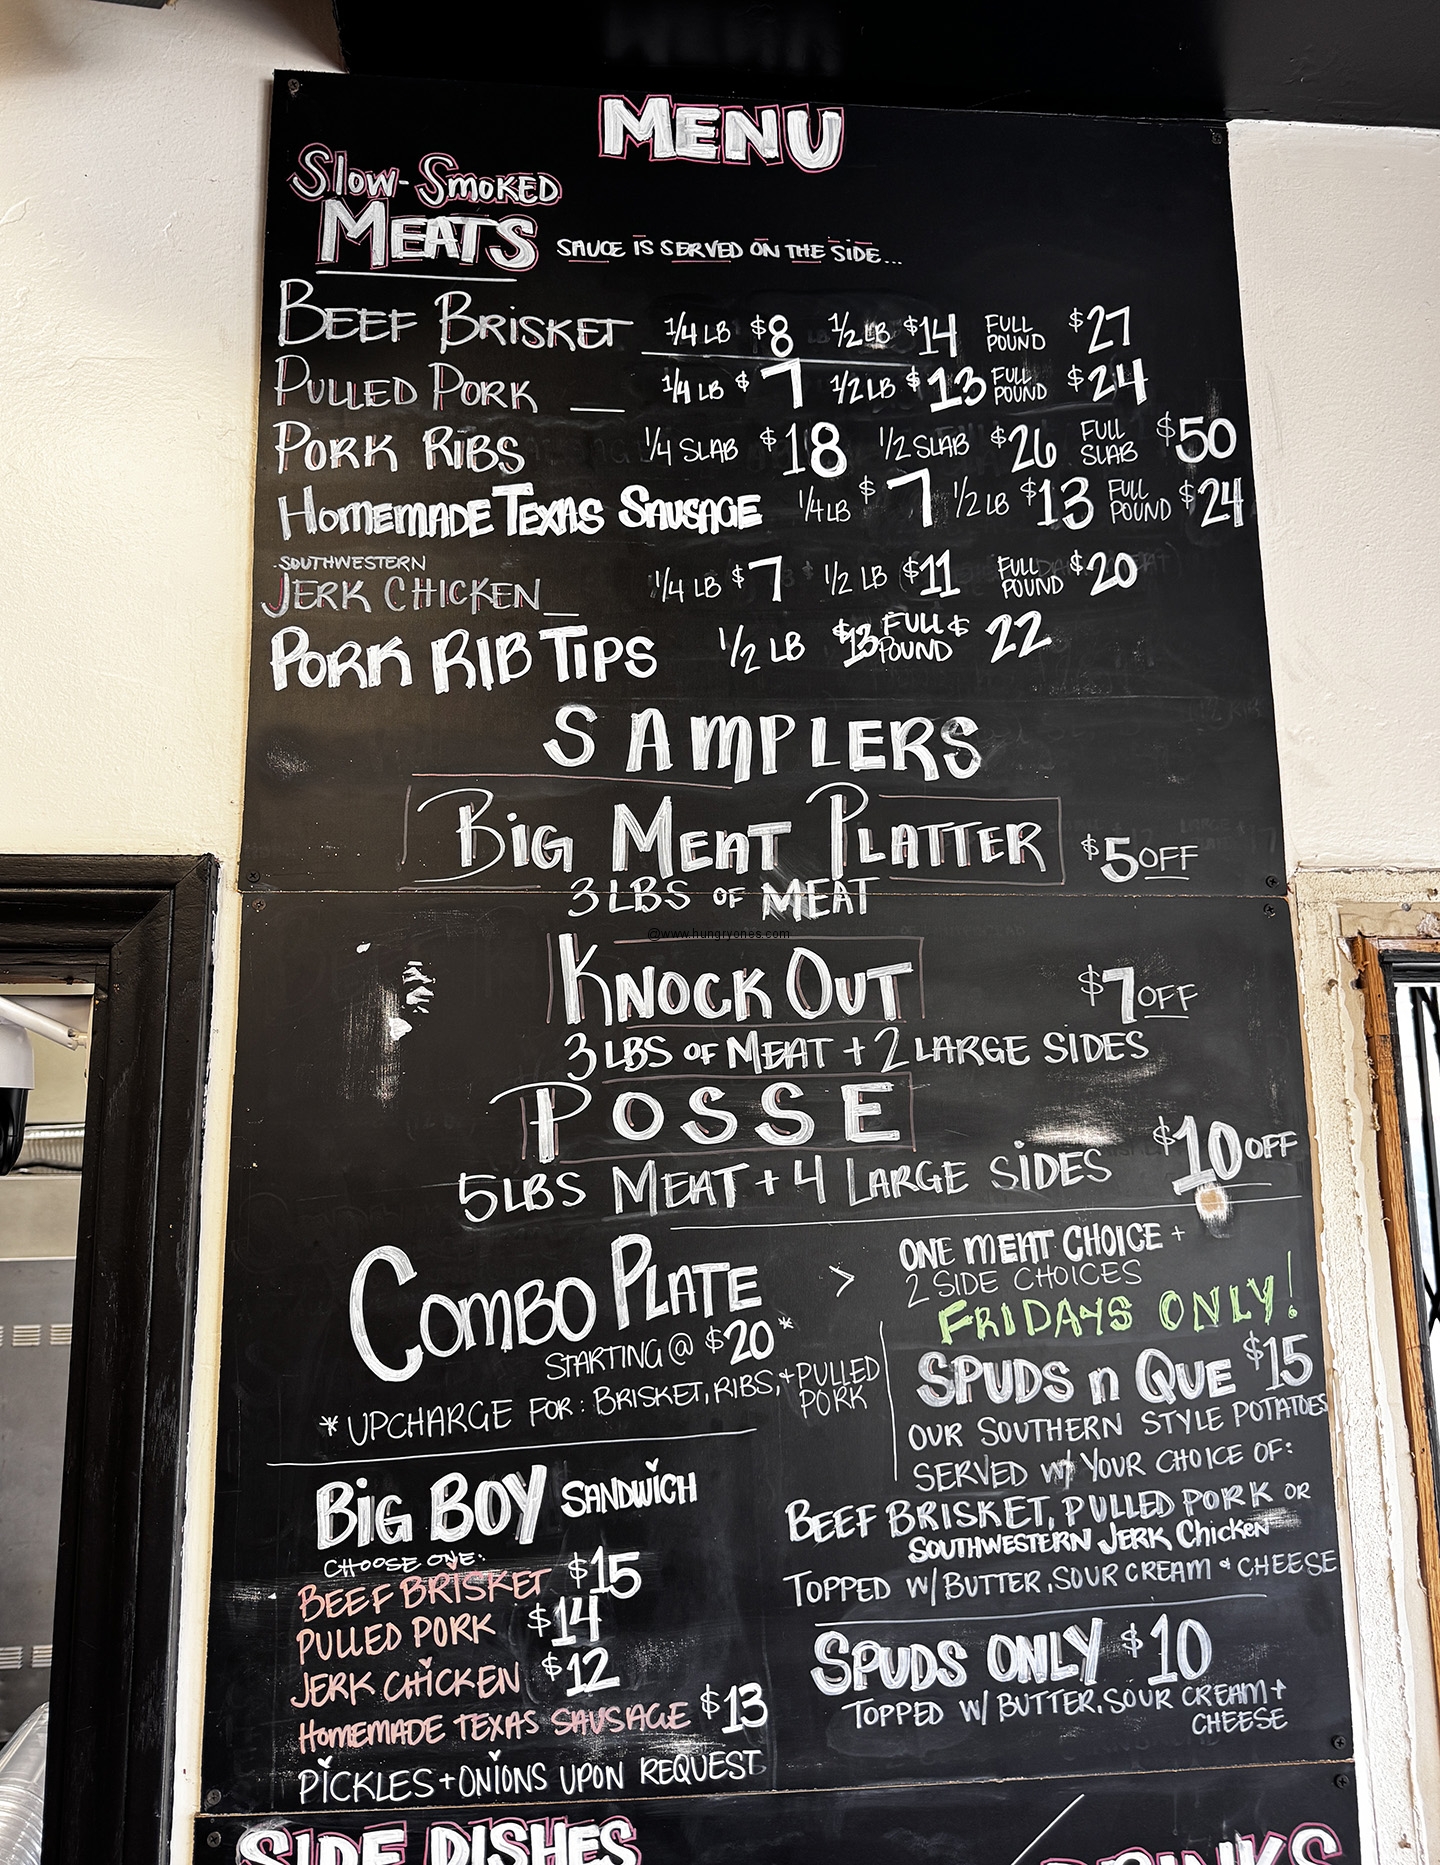 MENU
Slow-Smoked
MEATS SAUCE IS SERVED ON THE SIDE...
BEEF BRISKET 1/4 LB $8 1/2 LB $14 FULL POUND $27
PULLED PORK 1/4 LB $7 1/2 LB $13 FULL POUND $24
PORK RIBS 1/4 SLAB $18 1/2 SLAB $26 FULL SLAB $50
HOMEMADE TEXAS SAUSAGE 1/4 LB $7 1/2 LB $13 FULL POUND $24
SOUTHWESTERN
JERK CHICKEN 1/4 LB $7 1/2 LB $11 FULL POUND $20
PORK RIB TIPS 1/2 LB $13 FULL POUND $22
SAMPLERS
BIG MEAT PLATTER $5 OFF
3 LBS OF MEAT
@www.hungryones.com
KNOCK OUT $7 OFF
3 LBS OF MEAT + 2 LARGE SIDES
POSSE
5 LBS MEAT + 4 LARGE SIDES $10 OFF
COMBO PLATE > ONE MEAT CHOICE +
2 SIDE CHOICES
STARTING @ $20*
*UPCHARGE FOR: BRISKET, RIBS, + PULLED
PORK
FRIDAYS ONLY!
SPUDS n QUE $15
OUR SOUTHERN STYLE POTATOES
SERVED W/ YOUR CHOICE OF:
BEEF BRISKET, PULLED PORK OR
SOUTHWESTERN JERK Chicken
TOPPED W/ BUTTER, SOUR CREAM + CHEESE
BIG BOY SANDWICH
CHOOSE ONE:
BEEF BRISKET $15
PULLED PORK $14
JERK CHICKEN $12
HOMEMADE TEXAS SAUSAGE $13
PICKLES + ONIONS UPON REQUEST
SPUDS ONLY $10
TOPPED W/ BUTTER, SOUR CREAM +
CHEESE
SIDE DISHES
DRINKS